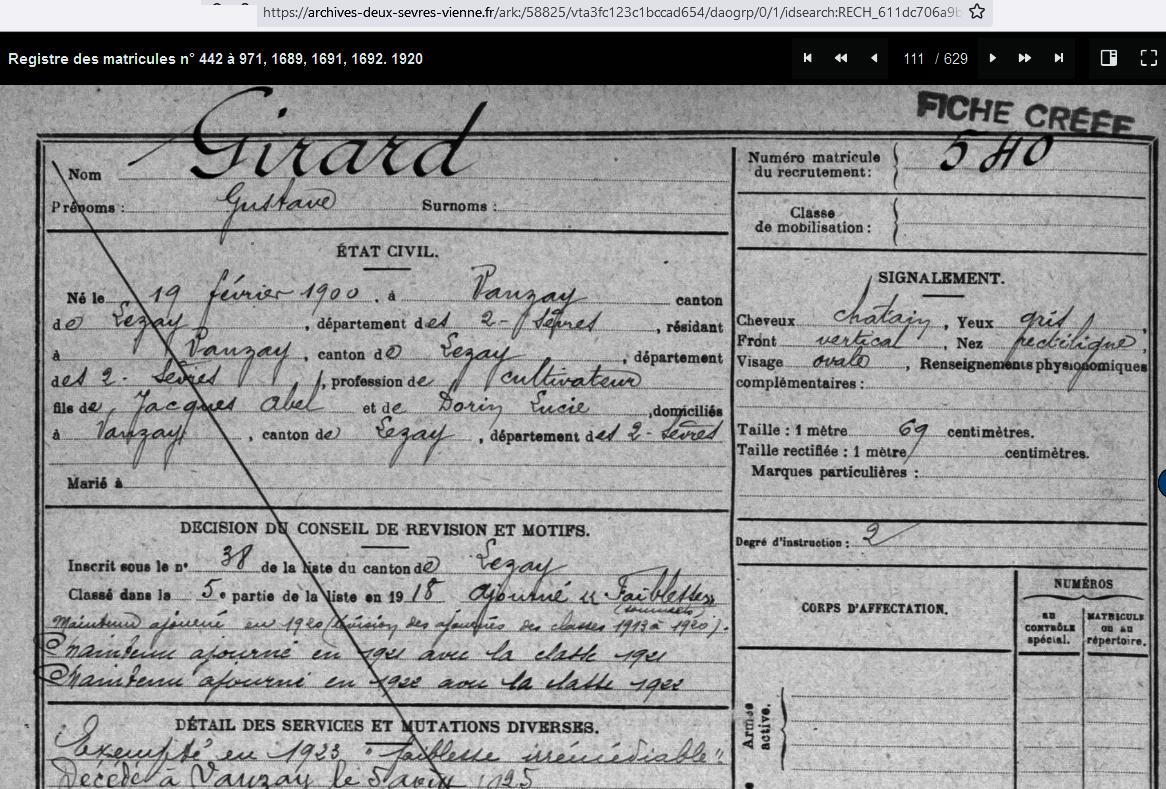 https://archives-deux-sevres-vienne.fr/ark:/58825/vta3fc123c1bccad654/daogrp/0/1/idsearch:RECH_611dc706a9b
Registre des matricules n° 442 à 971, 1689, 1691, 1692. 1920
111 / 629
FICHE CRÉÉE
Nom Girard
Prénoms : Gustave Surnoms :
Numéro matricule du recrutement : 540
Classe de mobilisation :
ÉTAT CIVIL.
Né le 19 février 1900, à Vanzay canton
de Lezay, département des 2-Sèvres, résidant
à Vanzay, canton de Lezay, département
des 2-Sèvres, profession de cultivateur
fils de Jacques Abel et de Dorin Lucie, domiciliés
à Vanzay, canton de Lezay, département des 2-Sèvres
Marié à
SIGNALEMENT.
Cheveux chatain, Yeux gris,
Front vertical, Nez rectiligne,
Visage ovale, Renseignements physionomiques
complémentaires :
Taille : 1 mètre 69 centimètres.
Taille rectifiée : 1 mètre centimètres.
Marques particulières :
Degré d'instruction : 2
DECISION DU CONSEIL DE REVISION ET MOTIFS.
Inscrit sous le n° 38 de la liste du canton de Lezay
Classé dans la 5e partie de la liste en 1918 ajourné "Faiblesse"
Maintenu ajourné en 1920 (révision des ajournés des classes 1913 à 1920).
Maintenu ajourné en 1921 avec la classe 1921
Maintenu ajourné en 1922 avec la classe 1922
CORPS D'AFFECTATION.
NUMÉROS
AU CONTRÔLE spécial.
MATRICULE ou au répertoire.
Armée active.
DÉTAIL DES SERVICES ET MUTATIONS DIVERSES.
Exempté en 1923 "faiblesse irrémédiable"
Décédé à Vanzay le 5 1925